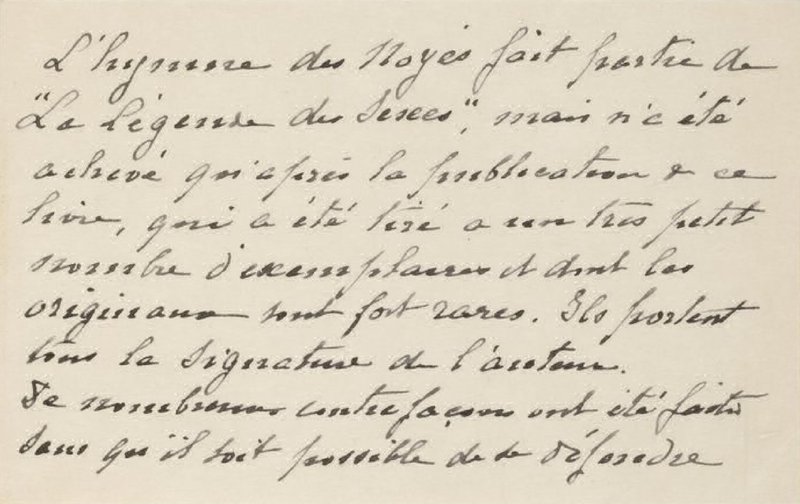 L'hymne des Noyés fait partie de
"La Légende des Sexes", mais n'a été
achevé qu'après la publication de ce
livre, qui a été tiré a un très petit
nombre d'exemplaires et dont les
originaux sont fort rares. Ils portent
tous la signature de l'auteur.
De nombreuses contrefaçons ont été faites
sans qu'il soit possible de se défendre